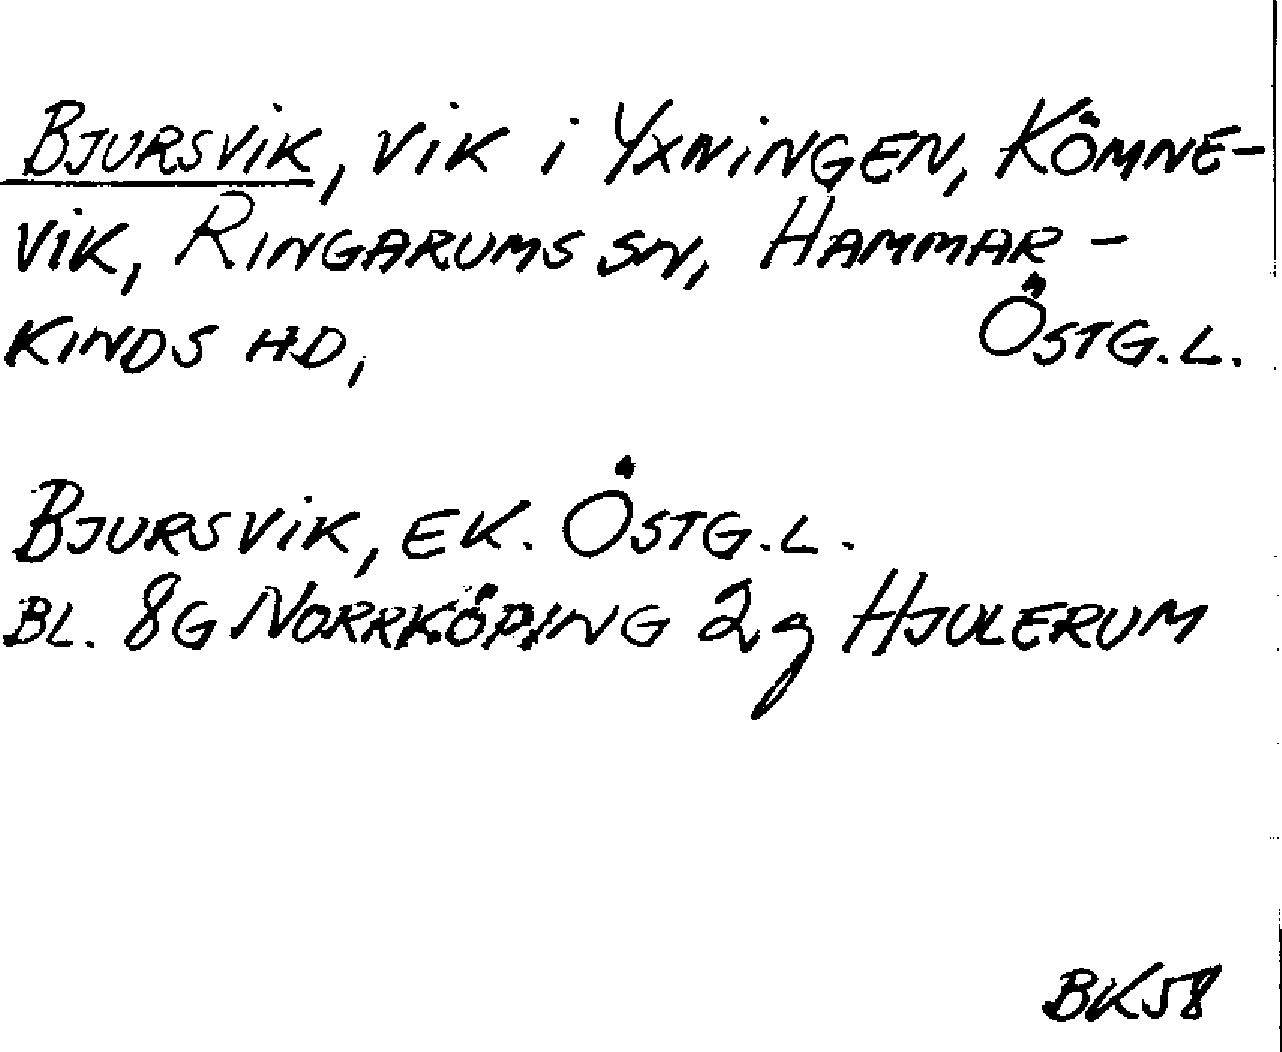 Bjursvik, vik i Yxningen, Kömne-
vik, Ringarums sn, Hammar-
kinds hd, Östg.l.
Bjursvik, ek. Östg.l.
bl. 8G Norrköping 2g Hjulerum
BK58